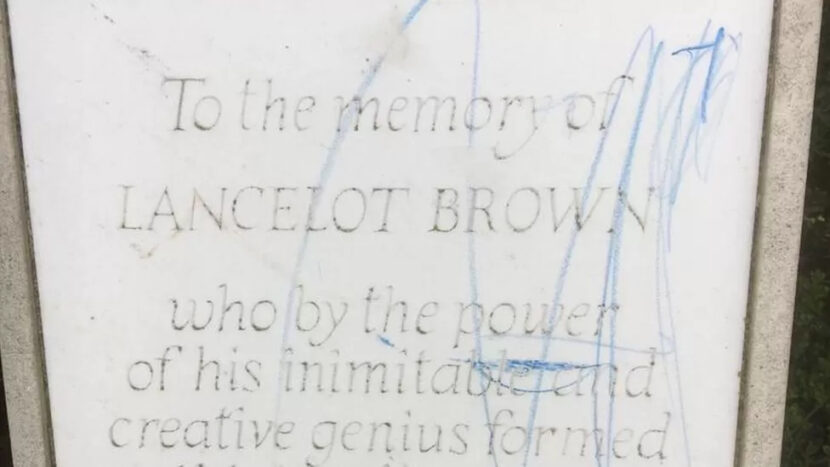 To the memory of
LANCELOT BROWN
who by the power
of his inimitable and
creative genius formed